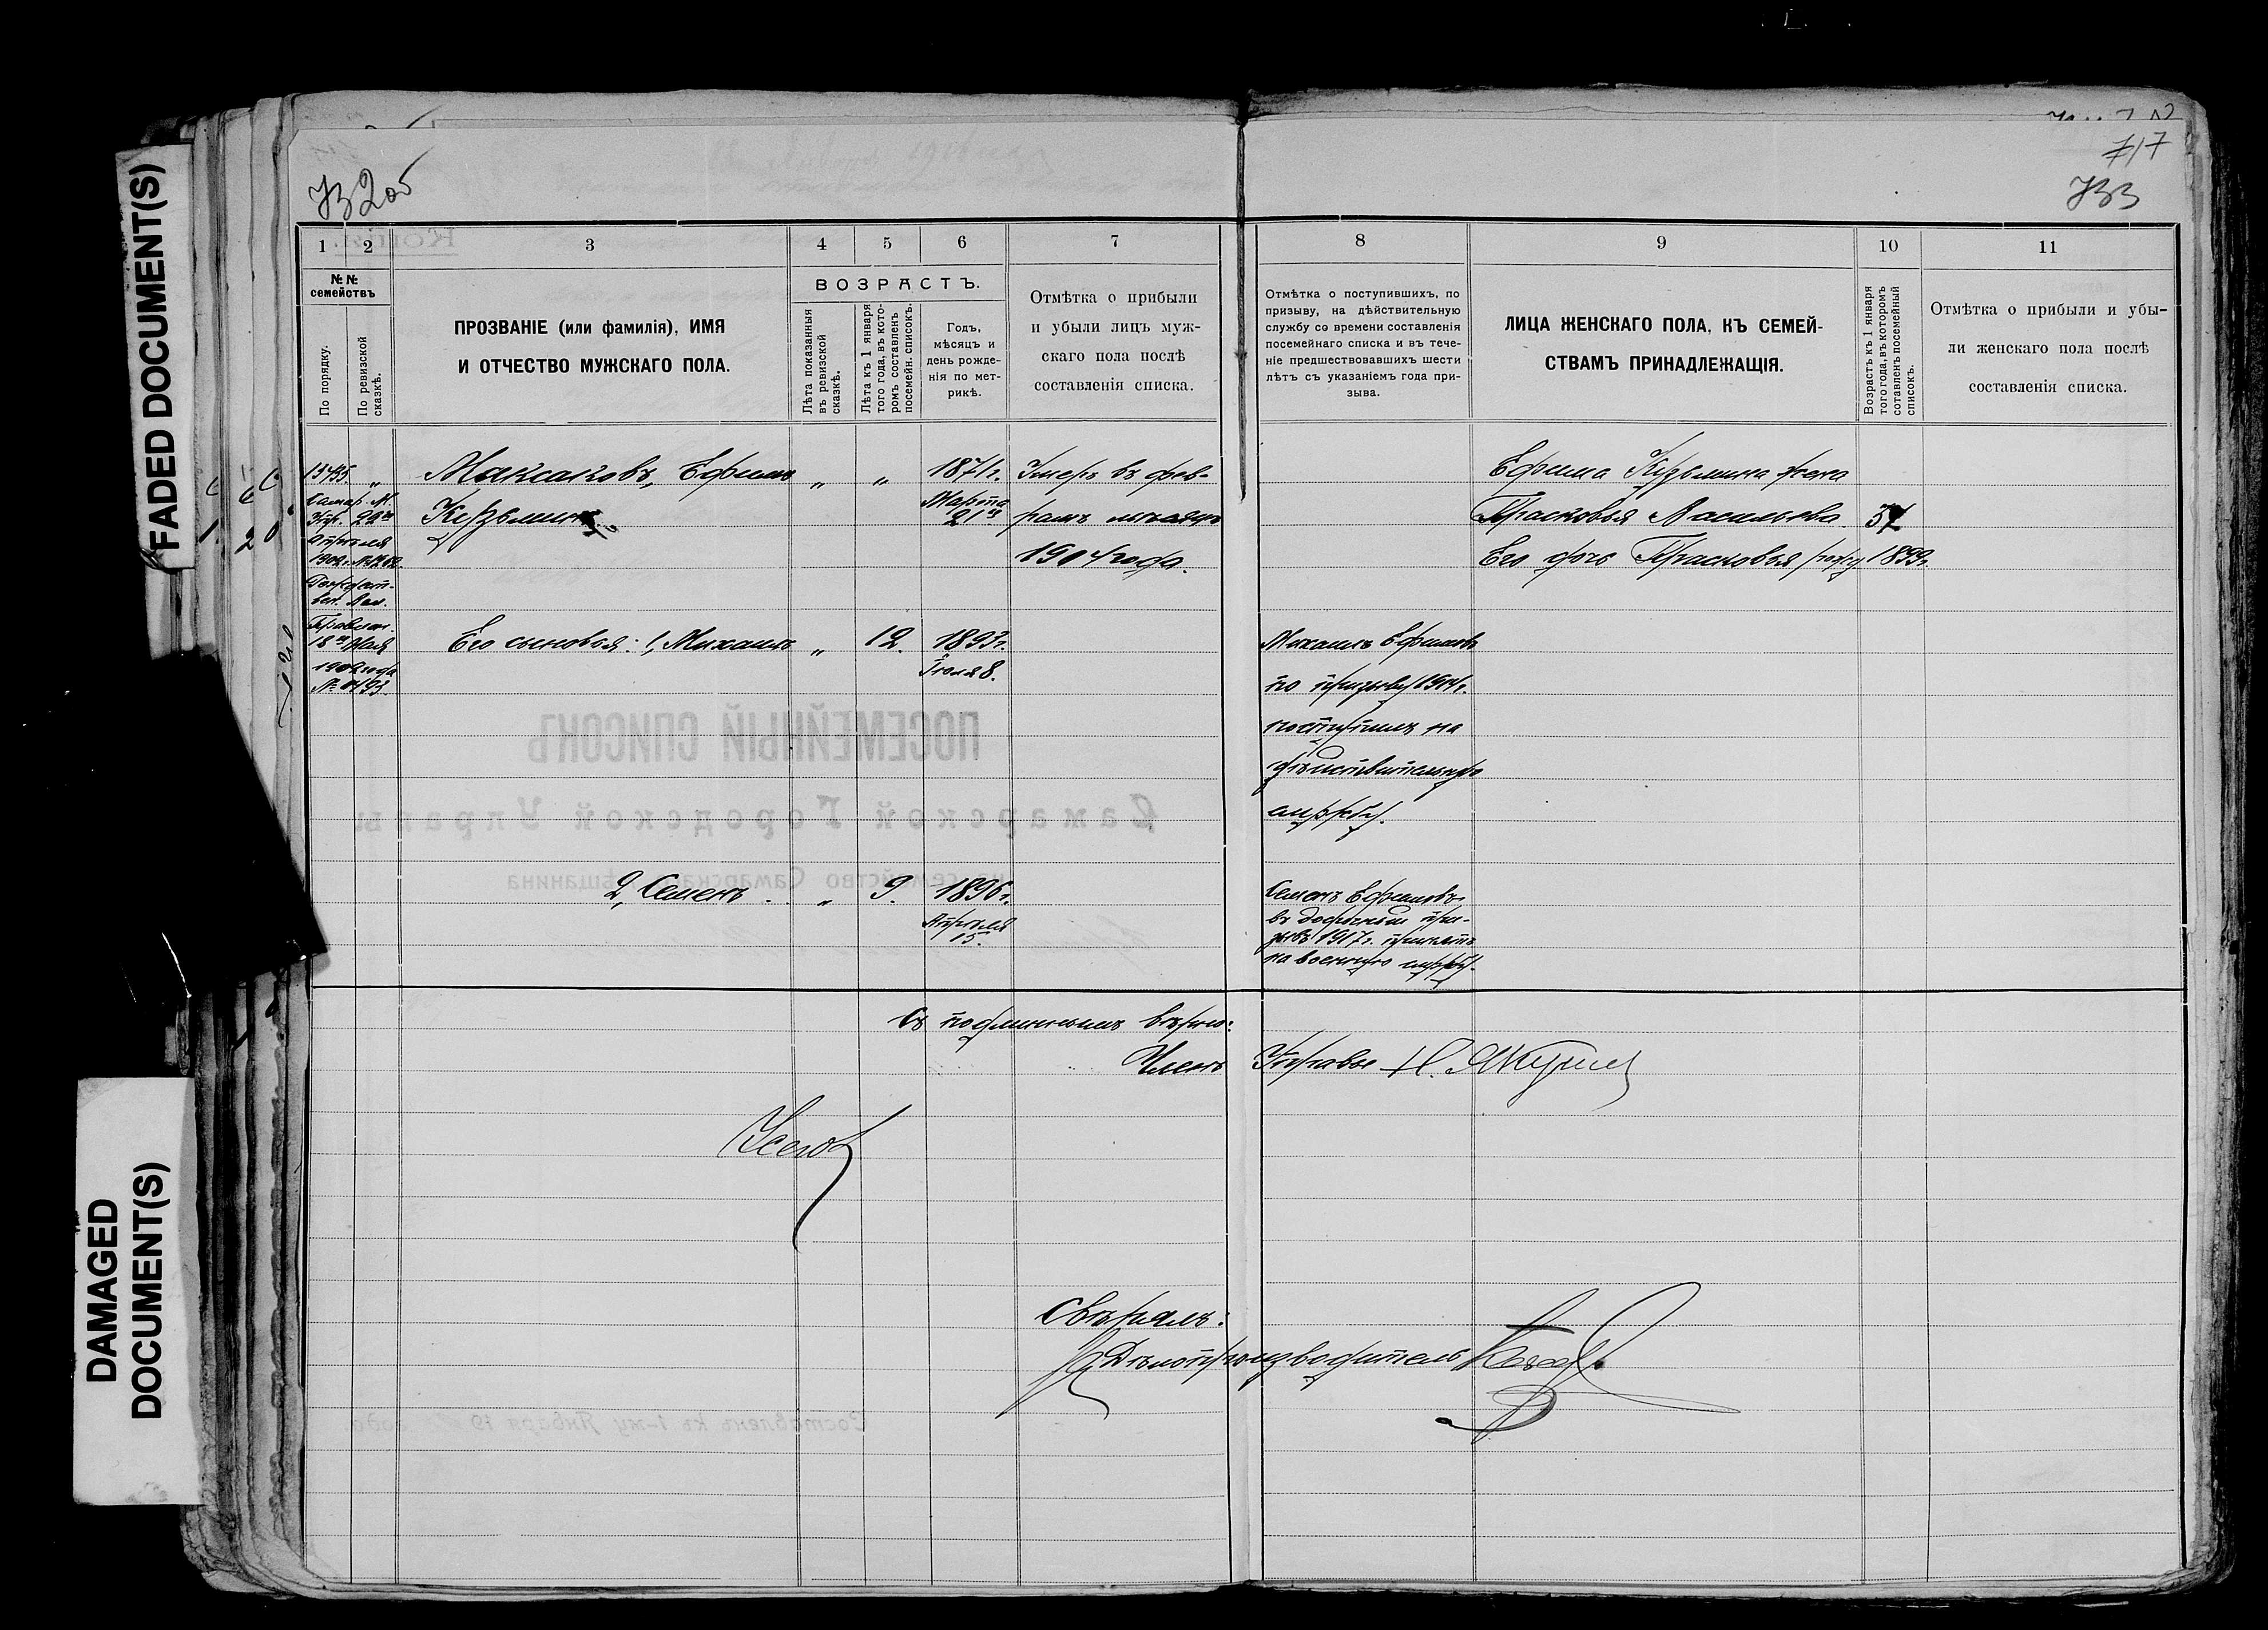 FADED DOCUMENT(S)
DAMAGED
DOCUMENT(S)
732об
717
733
1
2
3
4
5
6
7
8
9
10
11
№№
семействъ
По порядку.
По ревизской
сказкѣ.
ПРОЗВАНІЕ (или фамилія), ИМЯ
И ОТЧЕСТВО МУЖСКАГО ПОЛА.
ВОЗРАСТЪ.
Лѣта показанныя
въ ревизской
сказкѣ.
Лѣта къ 1 января
того года, въ кото-
ромъ составленъ
посемейн. списокъ.
Годъ,
мѣсяцъ и
день рожде-
нія по мет-
рикѣ.
Отмѣтка о прибыли
и убыли лицъ муж-
скаго пола послѣ
составленія списка.
Отмѣтка о поступившихъ, по
призыву, на дѣйствительную
службу со времени составленія
посемейнаго списка и въ тече-
ніе предшествовавшихъ шести
лѣтъ съ указаніемъ года при-
зыва.
ЛИЦА ЖЕНСКАГО ПОЛА, КЪ СЕМЕЙ-
СТВАМЪ ПРИНАДЛЕЖАЩІЯ.
Возрастъ къ 1 января
того года, въ которомъ
сотавленъ посемейный
списокъ.
Отмѣтка о прибыли и убы-
ли женскаго пола послѣ
составленія списка.
Самар. М.
Упр. 22го
Апрѣля
Правлен.
18го Мая
Максаковъ, Ефимъ
Кузьминъ
„ „
1871г.
Марта
21го
Умеръ въ фев-
ралѣ мѣсяцѣ
1904 года.
Ефима Кузьмина жена
Прасковья Васильева 37
Его дочь Прасковья род. 1899г.
Его сыновья: 1, Михаилъ „ 12. 1893г.
Іюля 8.
Михаилъ Ефимовъ
по призыву 1914г.
поступилъ на
дѣйствительную
службу.
2, Семенъ . „ 9. 1896г.
Апрѣля
15.
Семенъ Ефимовъ
въ досрочный при-
зывъ 1917г. принятъ
на военную службу.
Съ подлиннымъ вѣрно:
Членъ Управы
Свѣрялъ:
Дѣлопроизводитель
ПОСЕМЕЙНЫЙ СПИСОКЪ
Самарской Городской Управы
на семейство Самарскаго мѣщанина
Составленъ къ 1-му Января 19 года